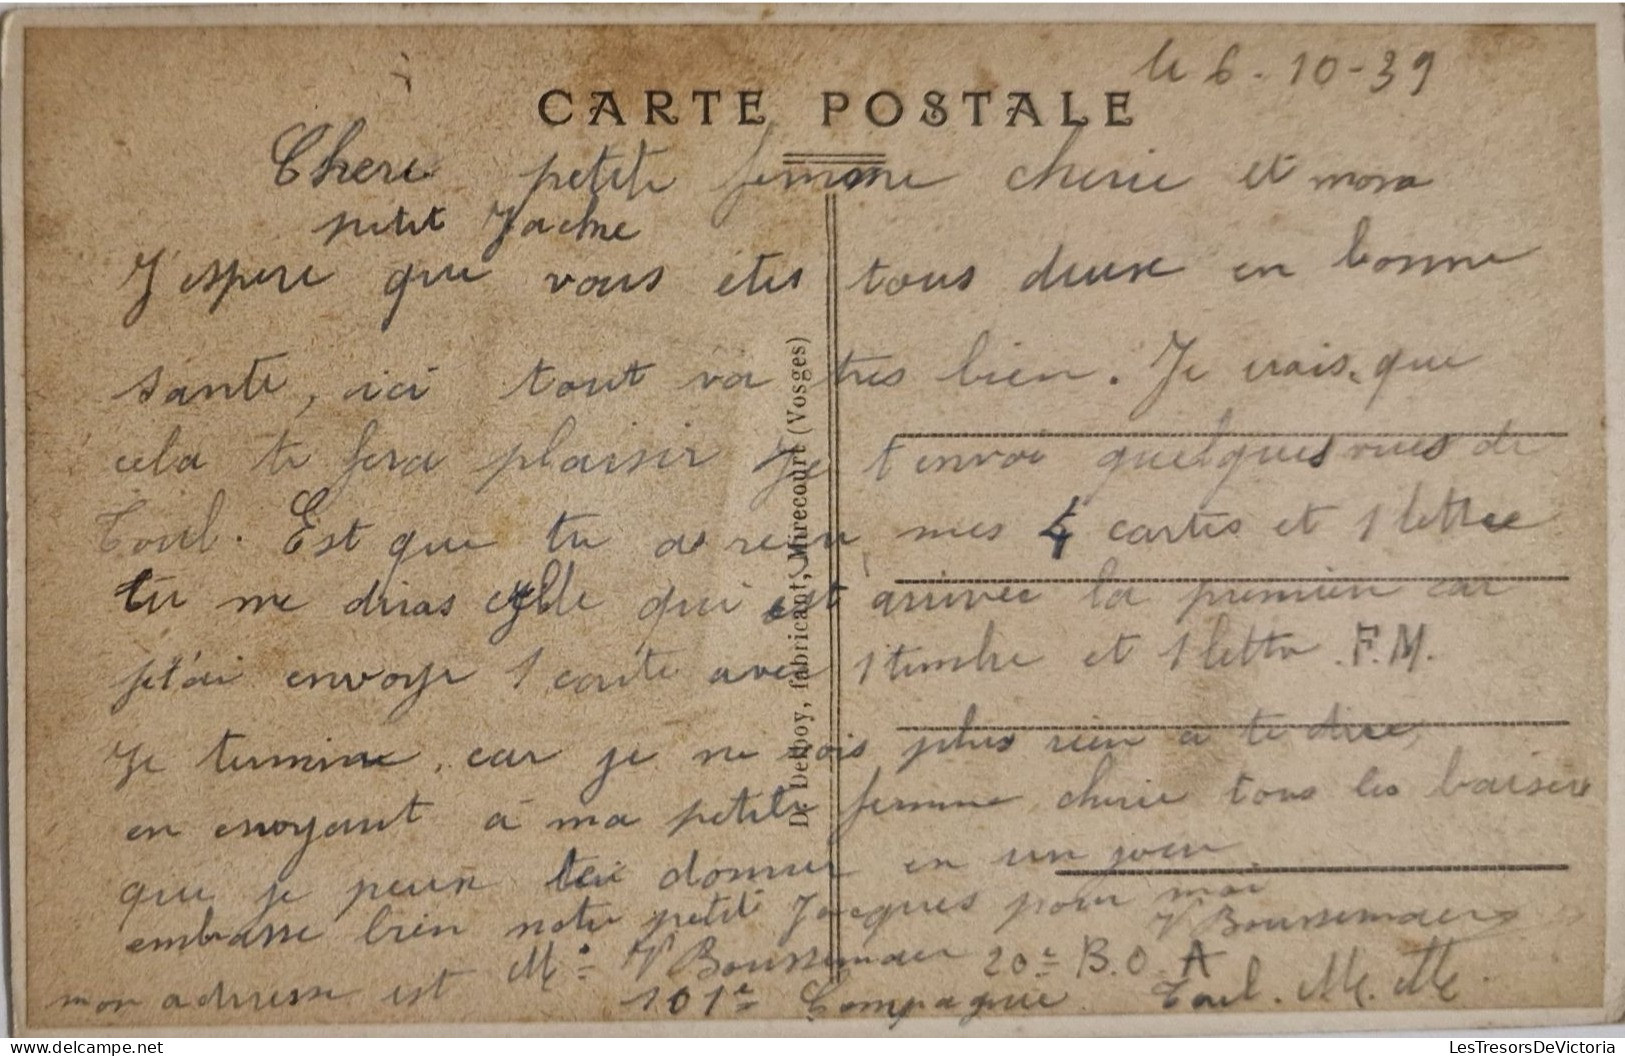 le 6-10-39
CARTE POSTALE
Chere petite femme cherie et mon
petit Jacke
J'espere que vous etes tous deux en bonne
sante, ici tout va tres bien. Je crois que
cela te fera plaisir Je t'envoi quelques vues de
Toul. Est que tu as recu mes 4 cartes et 1 lettre
tu me diras celle qui est arrivée la premier car
je t'ai envoye 1 carte avec 1 timbre et 1 lettre F.M.
Je termine, car je ne vois plus rien a te dire,
en envoyant à ma petite femme cherie tous les baisers
que je peux te donner en un jour
embrasse bien notre petit Jacques pour moi
V Boussemaer
mon adresse est Mr V Boussemaer 20e B.O.A
101e Compagnie Toul. M. M.
De Delboy, fabricant, Mirecourt (Vosges)
LesTresorsDeVictoria